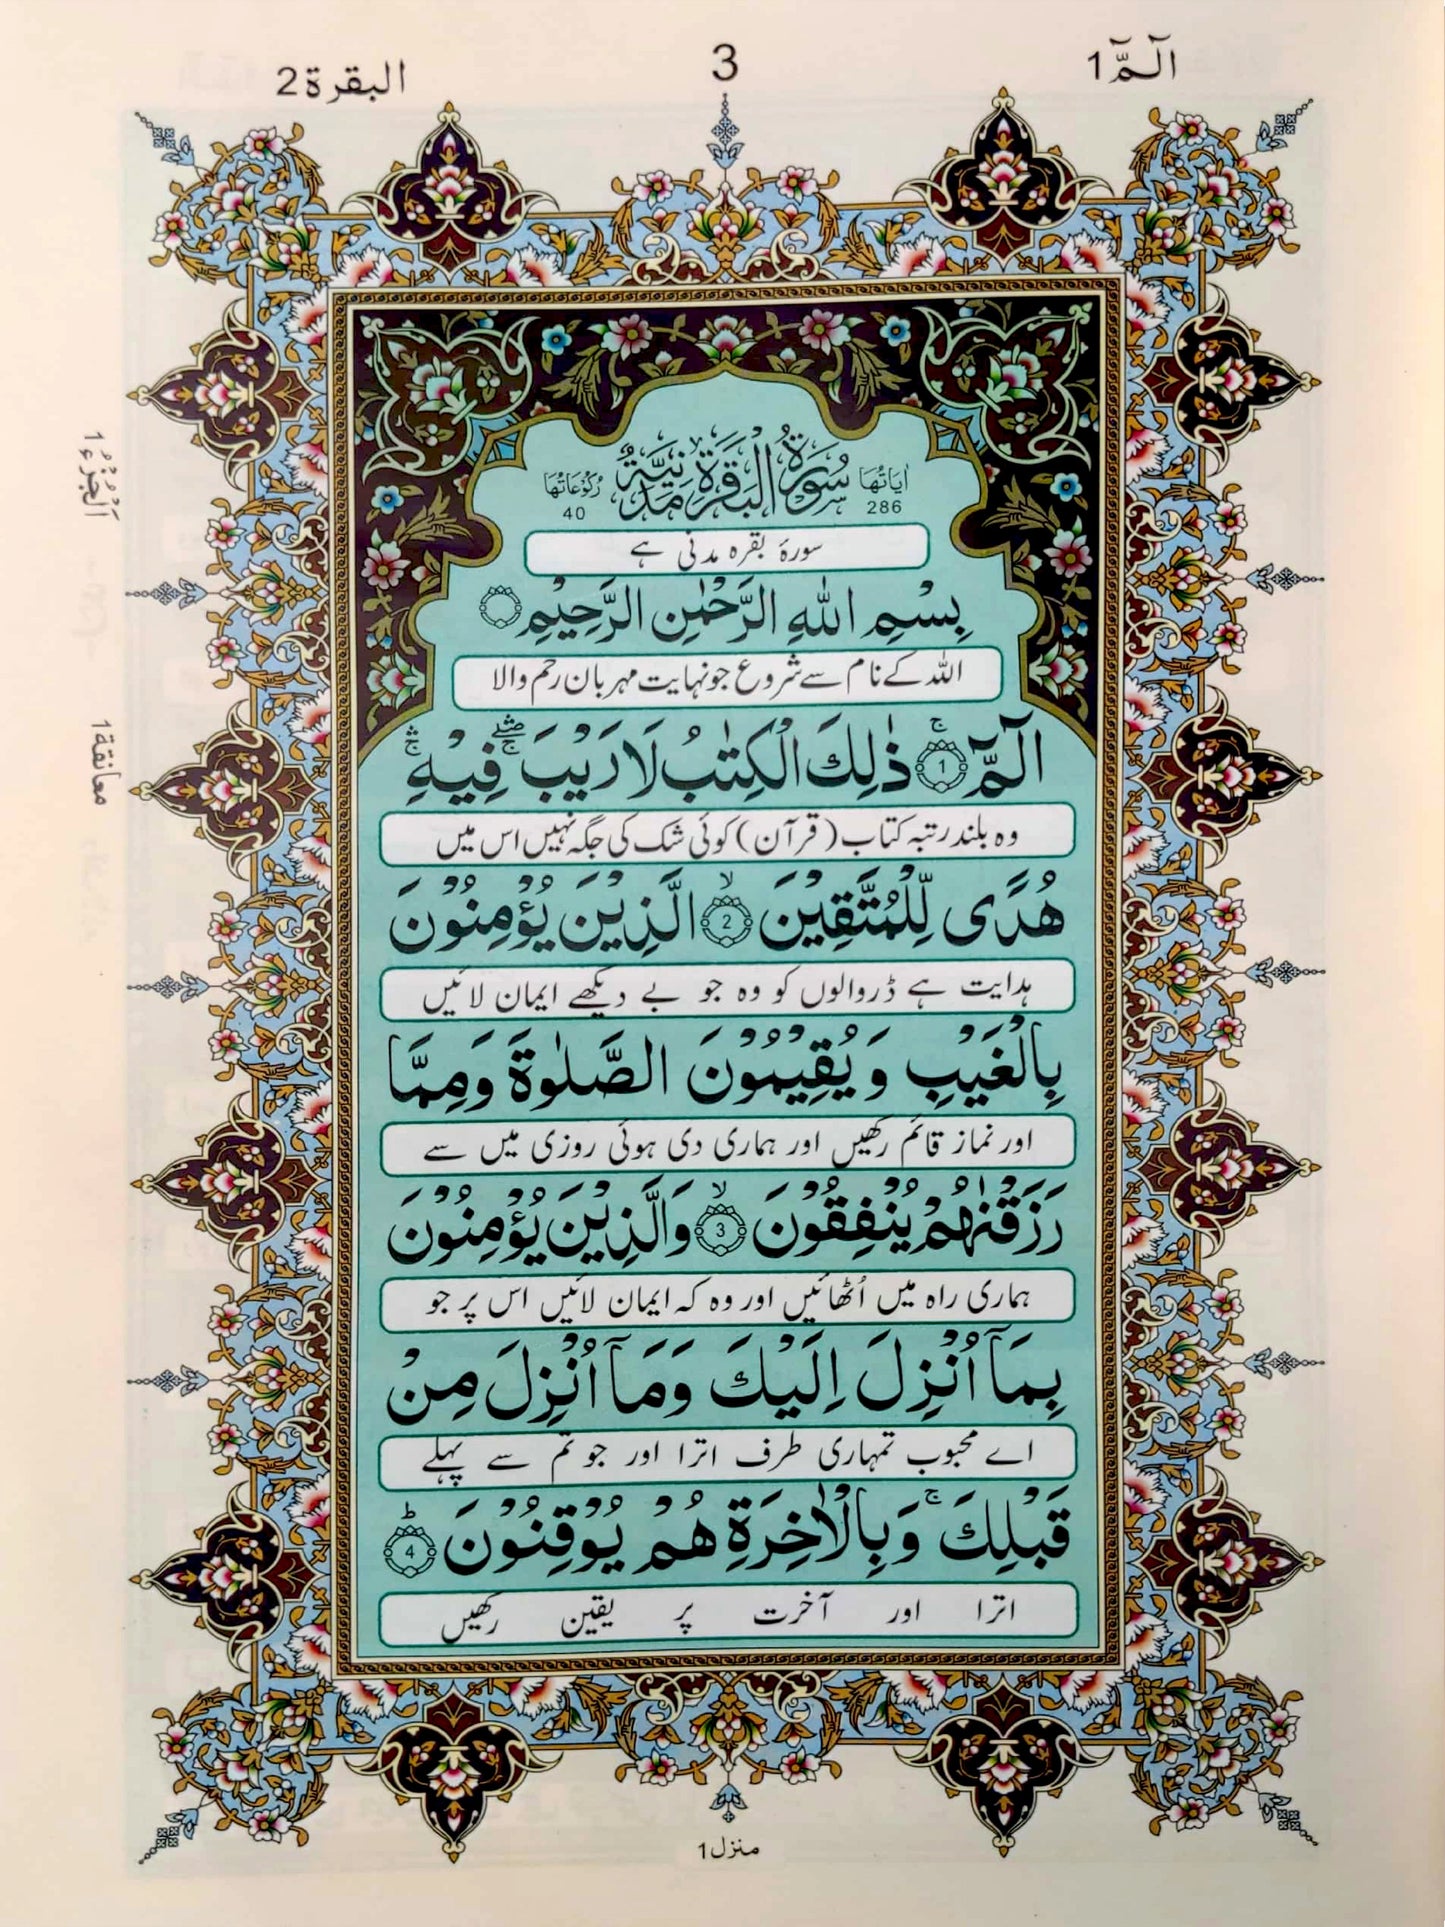 الٓمّٓ 1
3
البقرة 2
سُوْرَةُ الْبَقَرَةِ مَدَنِيَّةٌ
اٰيَاتُهَا 286
رُكُوْعَاتُهَا 40
سورۂ بقرہ مدنی ہے
بِسْمِ اللّٰهِ الرَّحْمٰنِ الرَّحِيْمِ
اللہ کے نام سے شروع جو نہایت مہربان رحم والا
الٓمّٓ ۚ 1 ذٰلِكَ الْكِتٰبُ لَا رَيْبَ ۛۖۚ فِيْهِ ۛۚ
وہ بلند رتبہ کتاب (قرآن) کوئی شک کی جگہ نہیں اس میں
هُدًى لِّلْمُتَّقِيْنَ ۙ 2 الَّذِيْنَ يُؤْمِنُوْنَ
ہدایت ہے ڈر والوں کو وہ جو بے دیکھے ایمان لائیں
بِالْغَيْبِ وَيُقِيْمُوْنَ الصَّلٰوةَ وَمِمَّا
اور نماز قائم رکھیں اور ہماری دی ہوئی روزی میں سے
رَزَقْنٰهُمْ يُنْفِقُوْنَ ۙ 3 وَالَّذِيْنَ يُؤْمِنُوْنَ
ہماری راہ میں اُٹھائیں اور وہ کہ ایمان لائیں اس پر جو
بِمَآ اُنْزِلَ اِلَيْكَ وَمَآ اُنْزِلَ مِنْ
اے محبوب تمہاری طرف اترا اور جو تم سے پہلے
قَبْلِكَ ۚ وَبِالْاٰخِرَةِ هُمْ يُوْقِنُوْنَ ؕ 4
اترا اور آخرت پر یقین رکھیں
اَلْجُزْءُ 1
معانقة 1
منزل 1